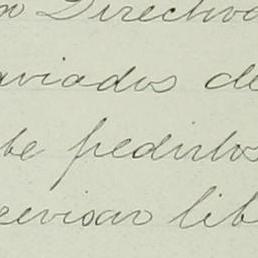 a Directiva
aviados de
be pedirlos
revisar lib